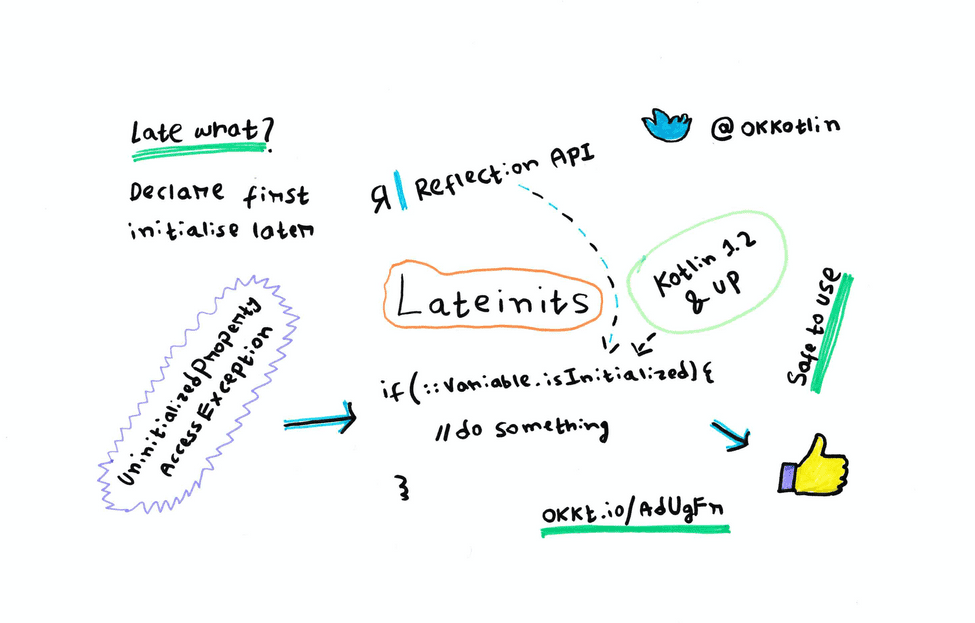 Late what?
@OKKotlin
Declare first
initialise later
Я| Reflection API
Kotlin 1.2
& UP
Lateinits
Safe to use
UninitializedProperty
AccessException
if(::variable.isInitialized){
//do something
}
OKKt.io/AdUgFr